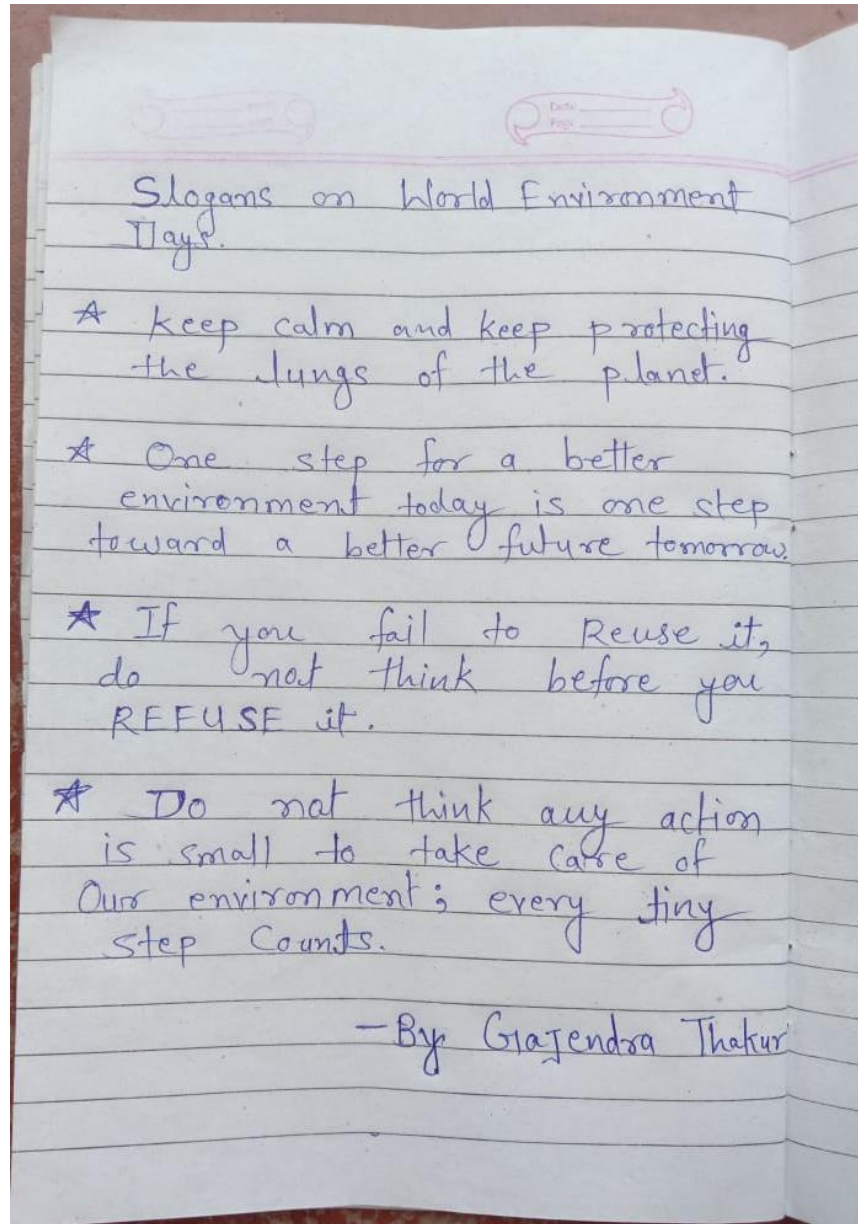 Date
Page
Slogans on World Environment
Days.
☆ keep calm and keep protecting
the lungs of the planet.
☆ One step for a better
environment today is one step
toward a better future tomorrow.
☆ If you fail to Reuse it,
do not think before you
REFUSE it.
☆ Do not think any action
is small to take care of
Our environment; every tiny
step Counts.
-By Gajendra Thakur